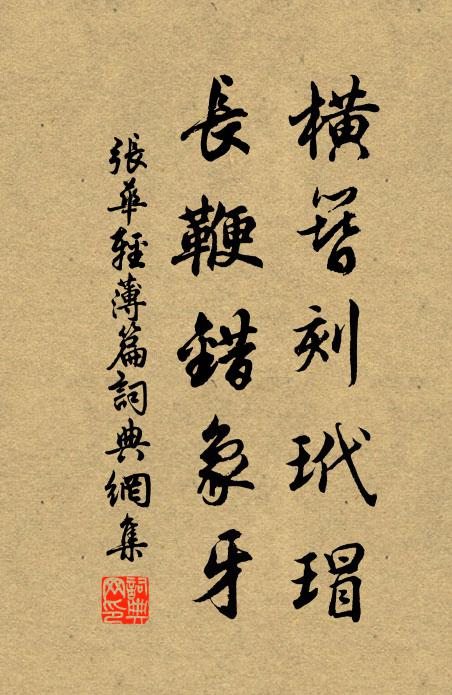 橫簪刻玳瑁
長鞭錯象牙
張華輕薄篇詞典網集
詞典网印